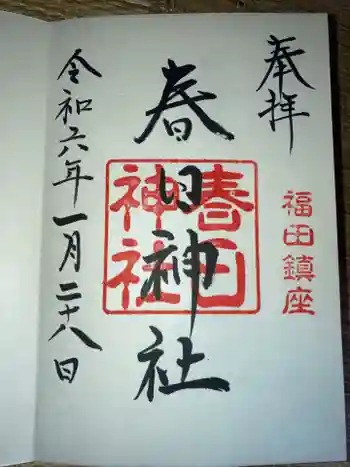 奉拝
福田鎮座
春日神社
春日神社
令和六年一月二十八日